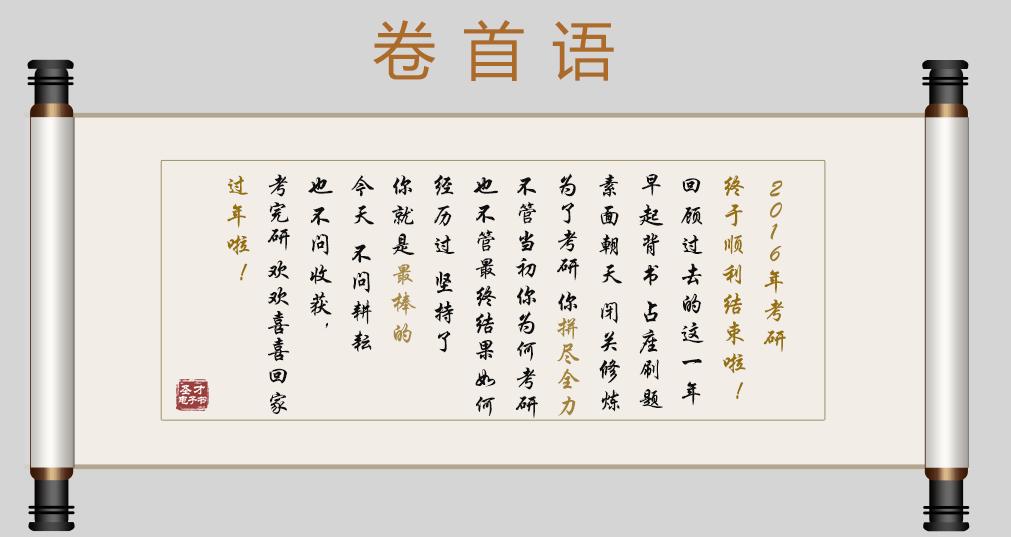 卷首语
2016年考研
终于顺利结束啦！
回顾过去的这一年
早起背书 占座刷题
素面朝天 闭关修炼
为了考研 你拼尽全力
不管当初你为何考研
也不管最终结果如何
经历过 坚持了
你就是最棒的
今天 不问耕耘
也不问收获，
考完研 欢欢喜喜回家
过年啦！
圣才
电子书